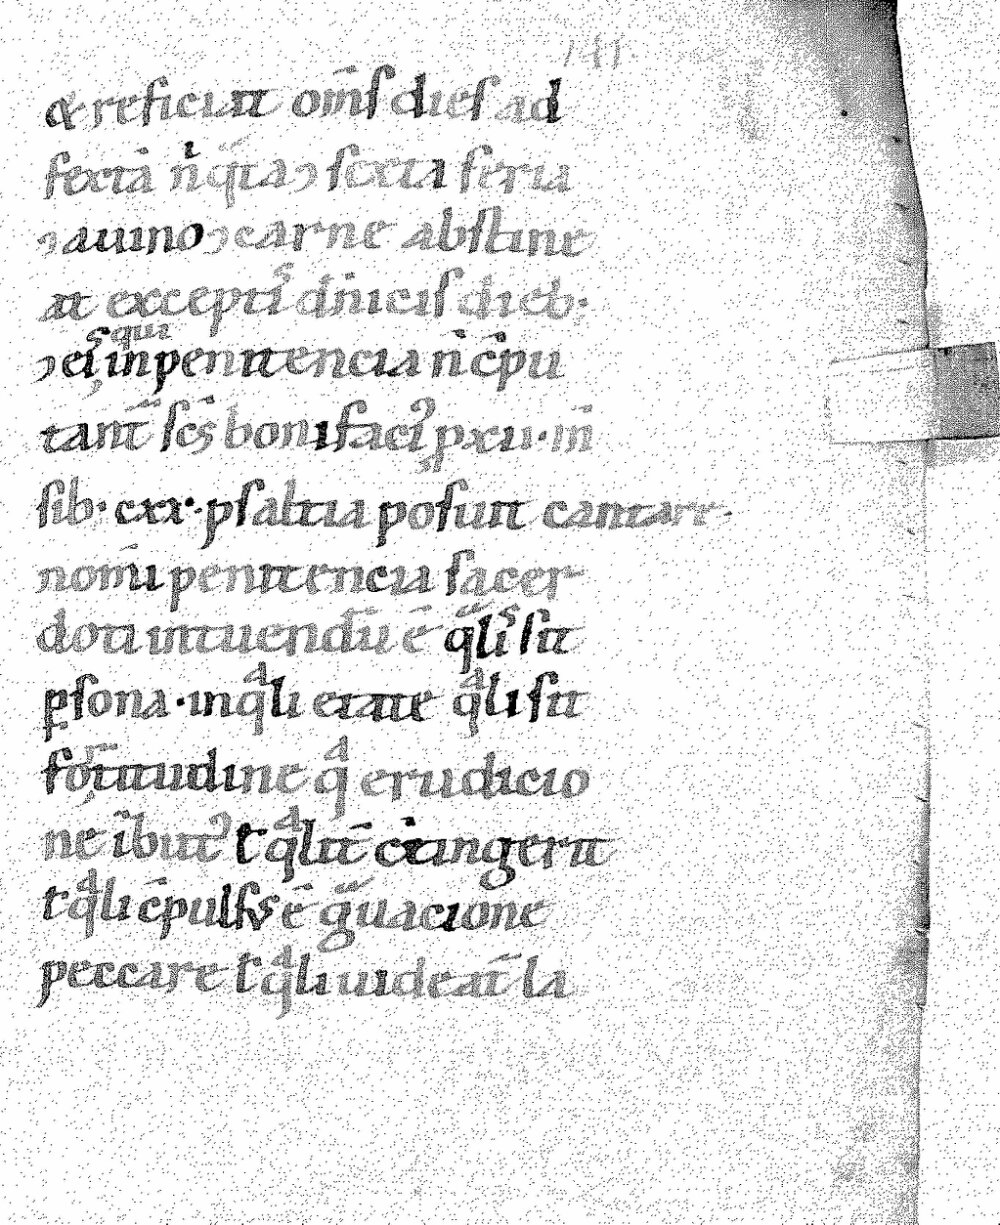 141
& reficiat om̄s dies ad
sexta n̄ q̄ta ⁊ sexta feria
⁊ a uino ⁊ carne abstine
at exceptis dn̄icis dieb·
⁊ eis qui in penitencia n̄ c̄pu
tant̄ sc̄s bonifaci᾿ p xcii· in̄
sib· cxx· psalt̄ia posunt cantare·
nom̄i penitencia sacer
doti intuendū ē q̄lis sit
ꝑsona· in qͣli etate qͣli sit
fortitudine qͣ erudicio
ne ībut᾿ ł qͣlit̄ c̄tangerit
ł qͣli c̄pulsus ē gͣuacione
peccare ł qͣli uideat̄ la